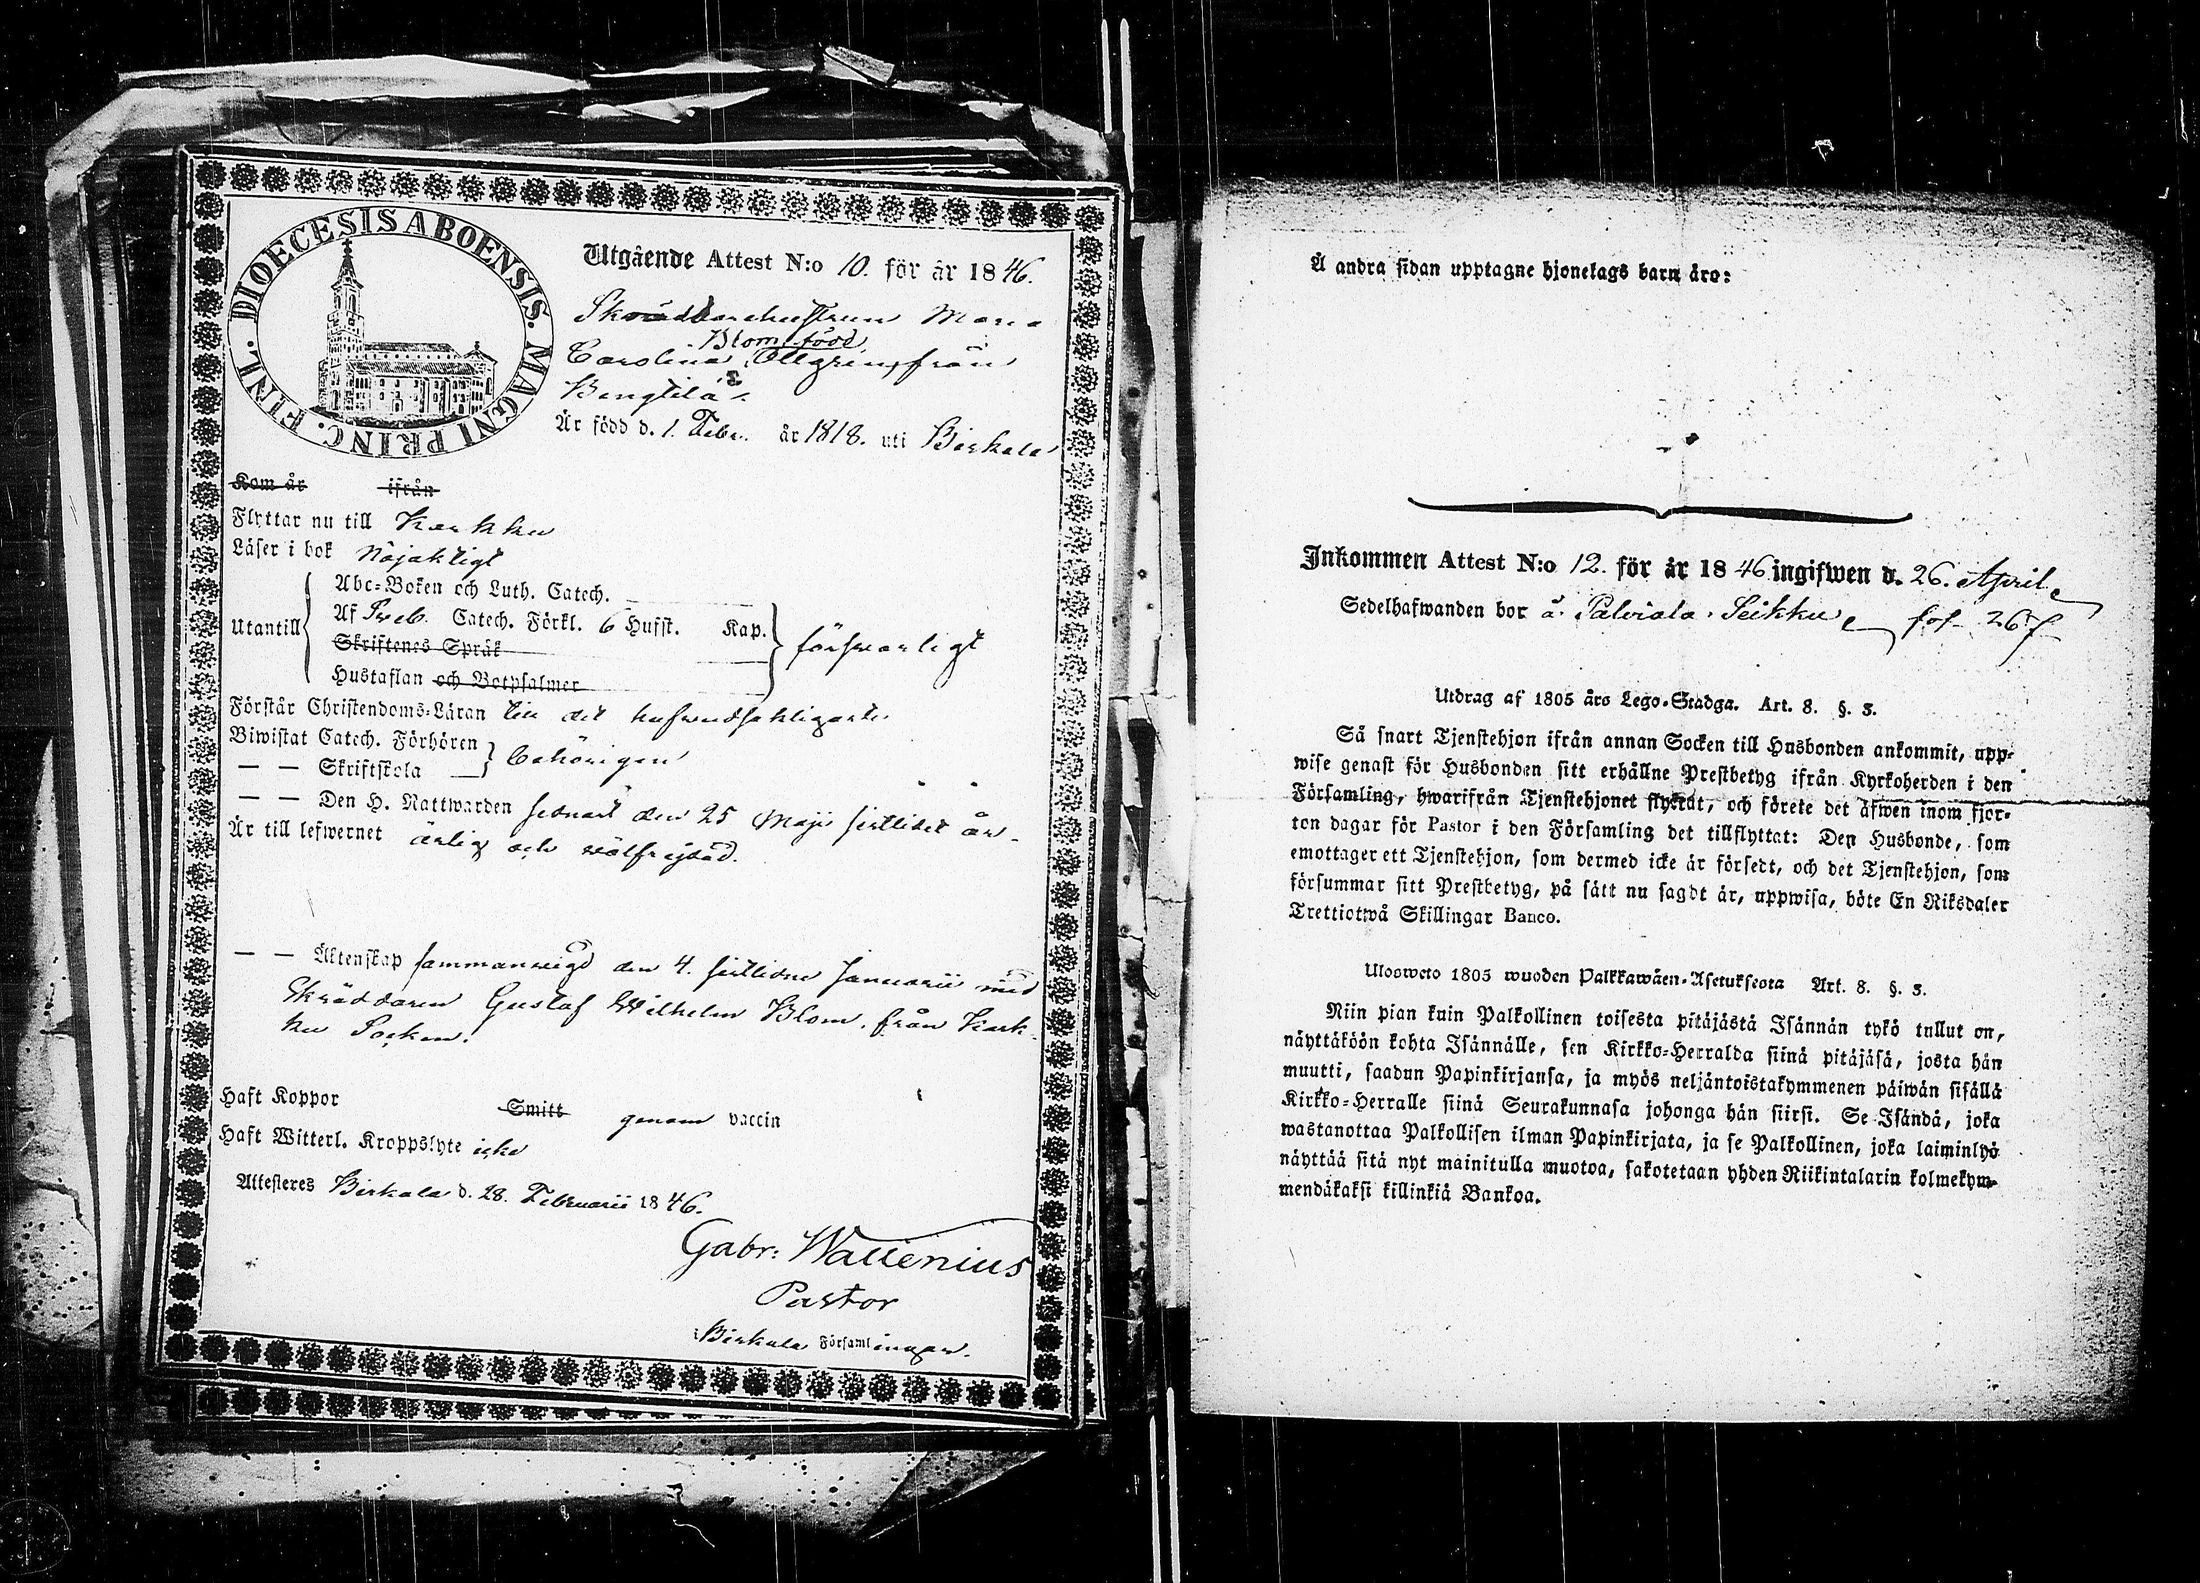 DIOECESIS ABOENSIS. MAGNI PRINC. FINL.
Utgående Attest N:o 10. för år 1846.
Skräddarehustrun Maria
Blom född
Carolina Ollgrin, från
Bengtilä.
Är född d. 1. Febr. år 1818. uti Birkala
Kom år ifrån
Flyttar nu till Karkku
Läser i bok Nöjaktigt
Utantill
Abc-Boken och Luth. Catech.
Af Sveb. Catech. Förkl. 6 Hufst. Kap.
Skriftenes Språk
Hustaflan och Botpsalmer
försvarligt
Förstår Christendoms-Läran till det hufvudsakligaste.
Biwistat Catech. Förhören
— — Skriftskola
behörigen
— — Den H. Nattwarden sednast den 25 Maji sistlidet år.
Är till lefwernet ärlig och välfrejdad.
— — Äktenskap sammanvigd den 4. sistlidne Januarii med
Skräddaren Gustaf Wilhelm Blom, från Kark-
ku Socken.
Haft Koppor Smitt genom vaccin
Haft Witterl. Kroppslyte icke
Attesteres Birkala d. 28. Februarii 1846.
Gabr: Wallenius
Pastor
Birkala Församlingar.
Å andra sidan upptagne hjonelags barn äro:
Inkommen Attest N:o 12. för år 1846 ingifwen d. 26. April
Sedelhafwanden bor å Palviala Seikku fol 267
Utdrag af 1805 års Lego-Stadga. Art. 8. §. 3.
Så snart Tjenstehjon ifrån annan Socken till Husbonden ankommit, upp-
wise genast för Husbonden sitt erhållne Prestbetyg ifrån Kyrkoherden i den
Församling, hwarifrån Tjenstehjonet flyttat, och förete det äfwen inom fjor-
ton dagar för Pastor i den Församling det tillflyttat: Den Husbonde, som
emottager ett Tjenstehjon, som dermed icke är försedt, och det Tjenstehjon, som
försummar sitt Prestbetyg, på sätt nu sagdt är, uppwisa, böte En Riksdaler
Trettiotwå Skillingar Banco.
Ulosweto 1805 wuoden Palkkawäen-Asetuksesta Art. 8. §. 3.
Niin pian kuin Palkollinen toisesta pitäjästä Isännän tykö tullut on,
näyttäköön kohta Isännälle, sen Kirkko-Herralda siinä pitäjäsä, josta hän
muutti, saadun Papinkirjansa, ja myös neljäntoistakymmenen päiwän sisällä
Kirkko-Herralle siinä Seurakunnasa johonga hän siirsi. Se Isändä, joka
wastanottaa Palkollisen ilman Papinkirjata, ja se Palkollinen, joka laiminlyö
näyttää sitä nyt mainitulla muotoa, sakotetaan yhden Riikintalarin kolmekym-
mendäkaksi killinkiä Bankoa.